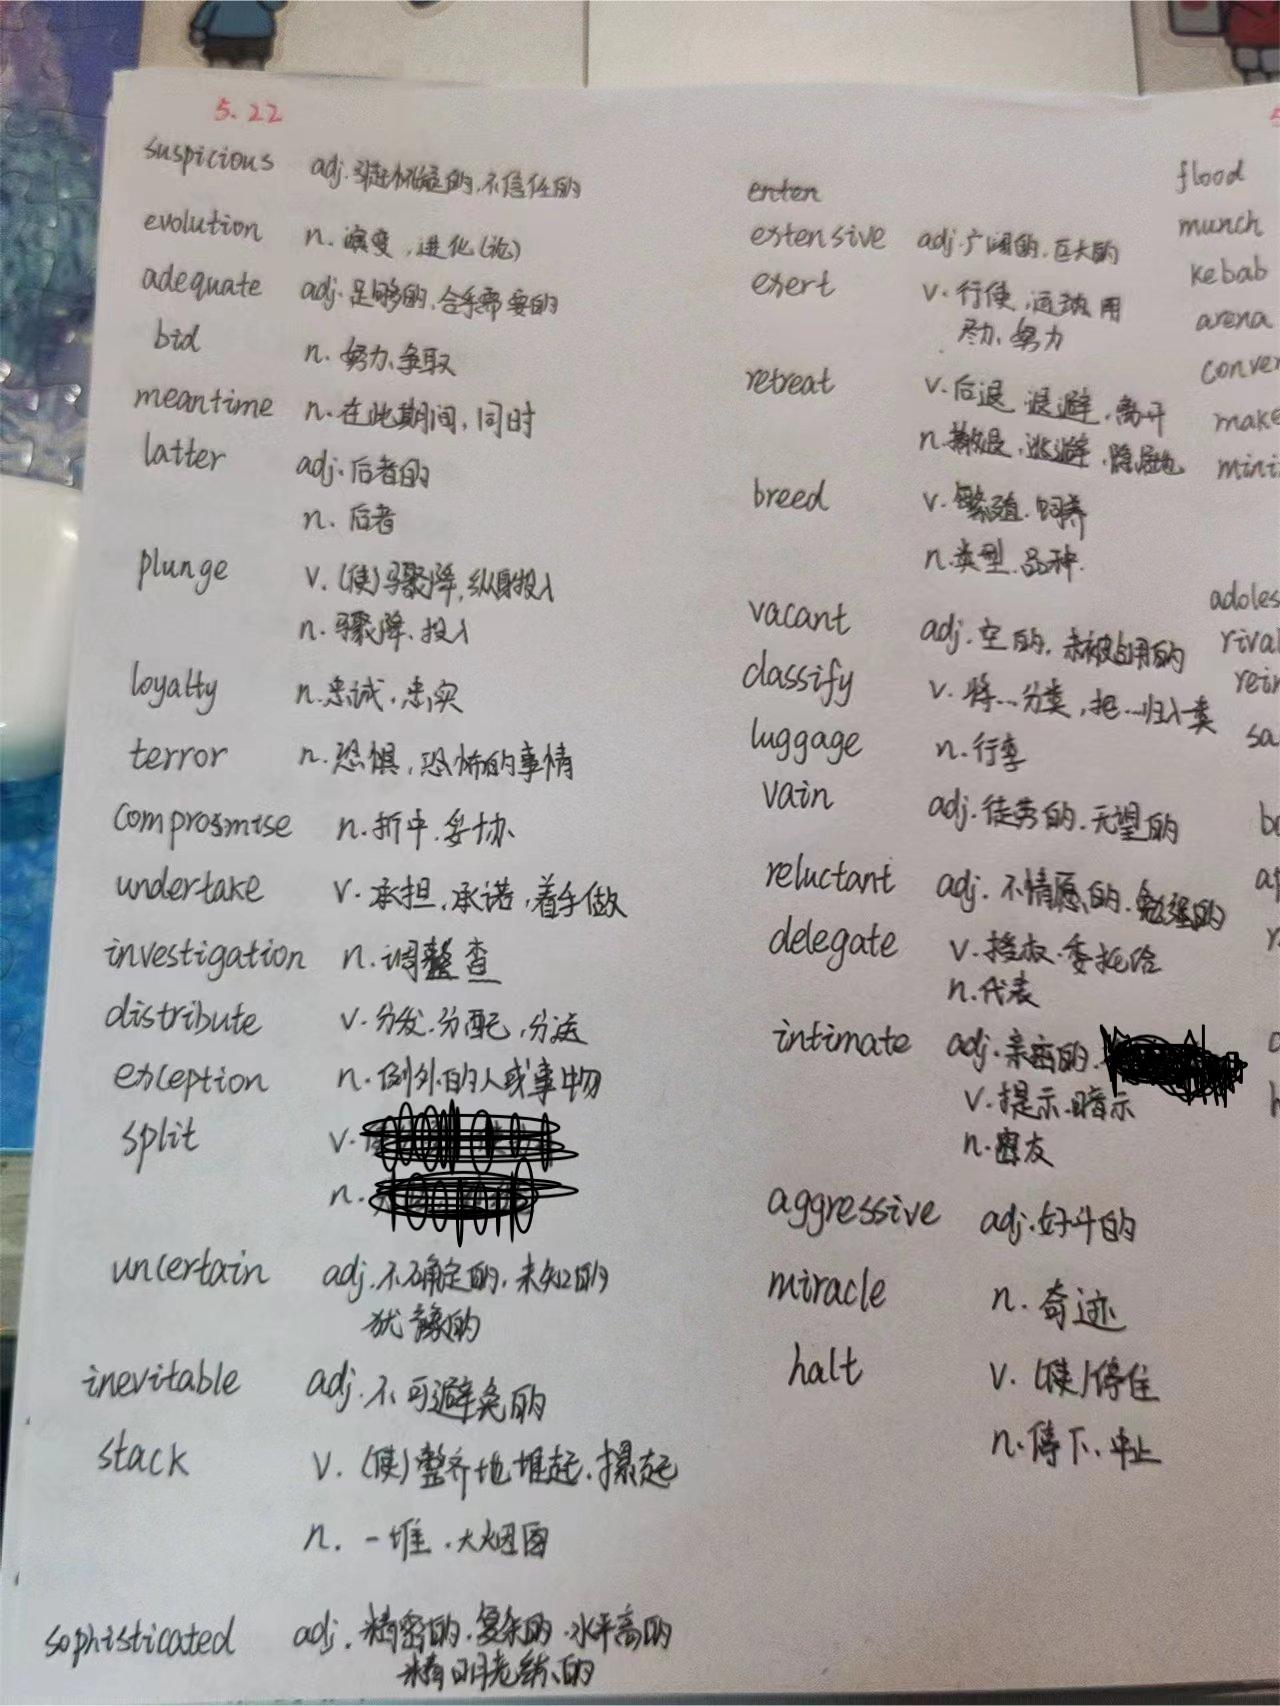 5.22
suspicious adj.引起怀疑的,不信任的
evolution n.演变,进化(论)
adequate adj.足够的,合乎需要的
bid n.努力,争取
meantime n.在此期间,同时
latter adj.后者的
n.后者
plunge v.(使)骤降,纵身投入
n.骤降.投入
loyalty n.忠诚,忠实
terror n.恐惧,恐怖的事情
comprosmise n.折中.妥协
undertake v.承担,承诺,着手做
investigation n.调查
distribute v.分发.分配,分送
exception n.例外的人或事物
split v.
n.
uncertain adj.不确定的,未知的
犹豫的
inevitable adj.不可避免的
stack v.(使)整齐地堆起.摞起
n.一堆.大烟囱
sophisticated adj.精密的.复杂的.水平高的
精明老练的
exten
extensive adj.广阔的.巨大的
exert v.行使,运用
尽力、努力
retreat v.后退,退避.离开
n.撤退,逃避.隐居地
breed v.繁殖.饲养
n.类型.品种.
vacant adj.空的,未被占用的
classify v.将...分类,把...归入一类
luggage n.行李
vain adj.徒劳的.无望的
reluctant adj.不情愿的.勉强的
delegate v.授权.委托给
n.代表
intimate adj.亲密的.
v.提示.暗示
n.密友
aggressive adj.好斗的
miracle n.奇迹
halt v.(使)停住
n.停下、中止
flood
munch
kebab
arena
conver
make
mini
adoles
rival
rein
sa